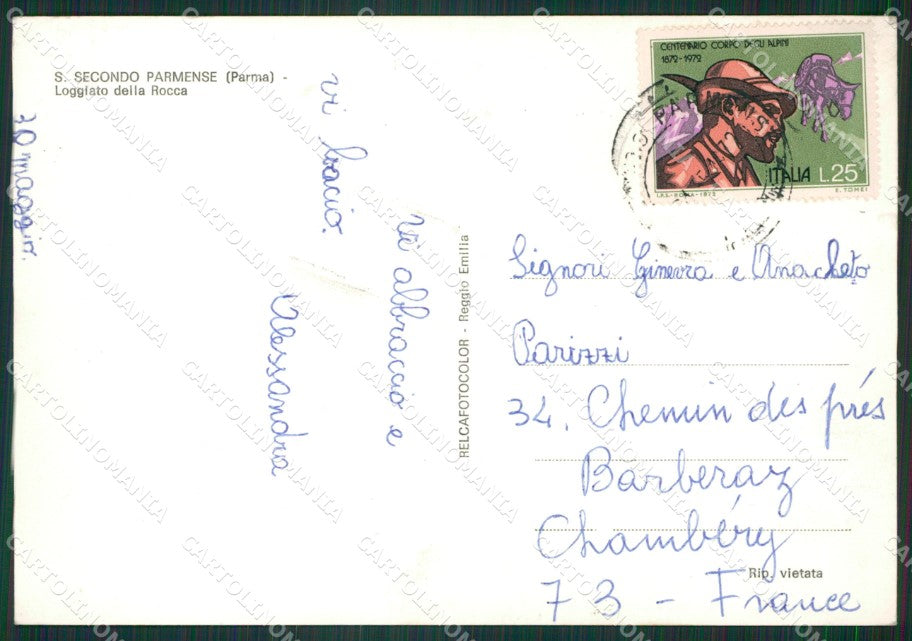 S. SECONDO PARMENSE (Parma) -
Loggiato della Rocca
30 maggio.
Vi abbraccio e
vi bacio.
Alessandra
RELCAFOTOCOLOR - Reggio Emilia
CENTENARIO CORPO DEGLI ALPINI
1872-1972
ITALIA L.25
I.P.S.-ROMA-1972
E. TOMEI
Signori Ginevra e Anacleto
Parizzi
34, Chemin des prés
Barberaz
Chambéry
73 - France
Rip. vietata
CARTOLINOMANIA